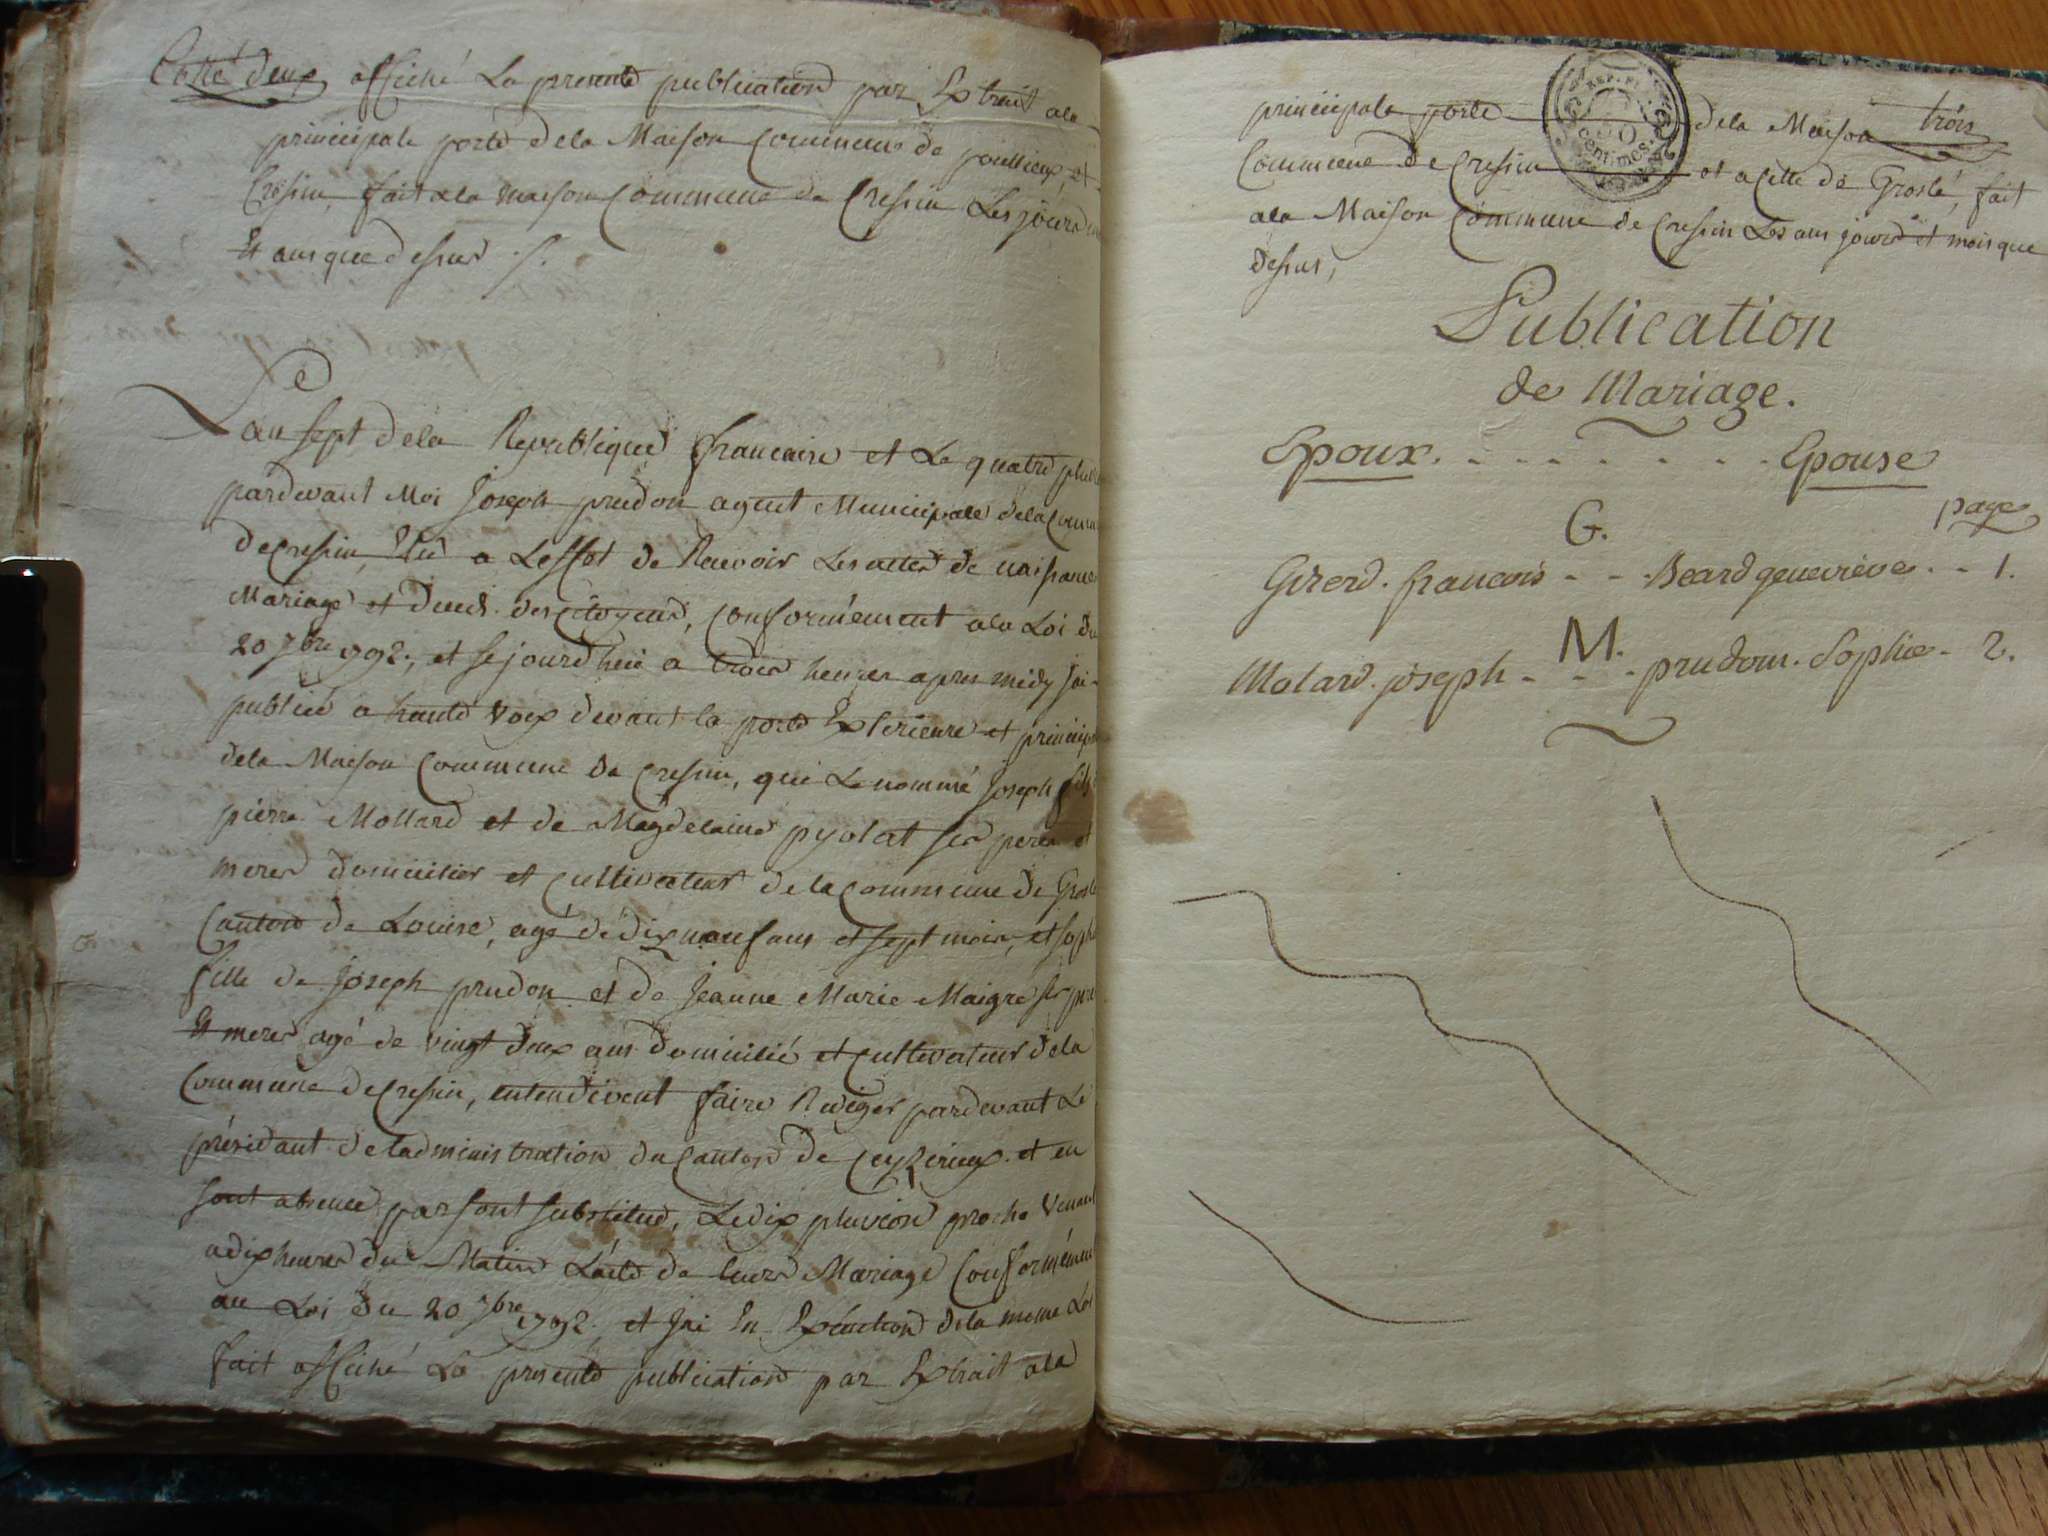 Cotté deux affiché La presente publication par Extrait ala
principale porte dela Maison Commune de poullieux, et
Cressin, fait ala maison Commune de Cressin Les jours
Et ans que dessus ./.
Le
an sept dela Republique francaise et Le quatre
pardevant Moi Joseph prudon agent Municipale dela
de Cressin, Elu a Leffet de Recevoir Les actes de naissance
Mariage et deces des Citoyens, Conformément ala Loi du
20 7bre 1792., et sejourdhui a trois heures apres midy jai
publié a haute Voix devant la porte Exterieure et
dela Maison Commune de Cressin, que Le nommé Joseph fils
pierre Mollard et de Magdelaine pyolat ses peres et
meres domicilies et Cultivateur de la Commune de Groslé
Canton de Louise, agé de dix neuf ans et sept mois, et
fille de Joseph prudon et de Jeanne Marie Maigre ses
Et meres agé de vingt deux ans domicilié et Cultivateur dela
Commune de Cressin, entendivent faire Rediger pardevant Le
président de Ladministration du Canton de Ceyzerieux et en
sont absence par sont substitud, Le dix pluviose proche Venant
a dix heures du Matin Lacte de leurs Mariage Conformément
au Loi du 20 7bre 1792. et Jai En Execution dela meme Loi
fait affiché La presente publication par Extrait ala
trois
principale porte dela Maison
Commune de Cressin et a Celle de Groslé, fait
ala Maison Commune de Cressin Les ans jours et mois que
dessus,
REP. FR.
50
Centimes.
Publication
de Mariage.
Epoux. - - - - - - - - Epouse
G. page
Girerd. francois - - - Beard genevieve. - - 1.
M.
Molard. joseph - - - prudom. Sophie - 2.